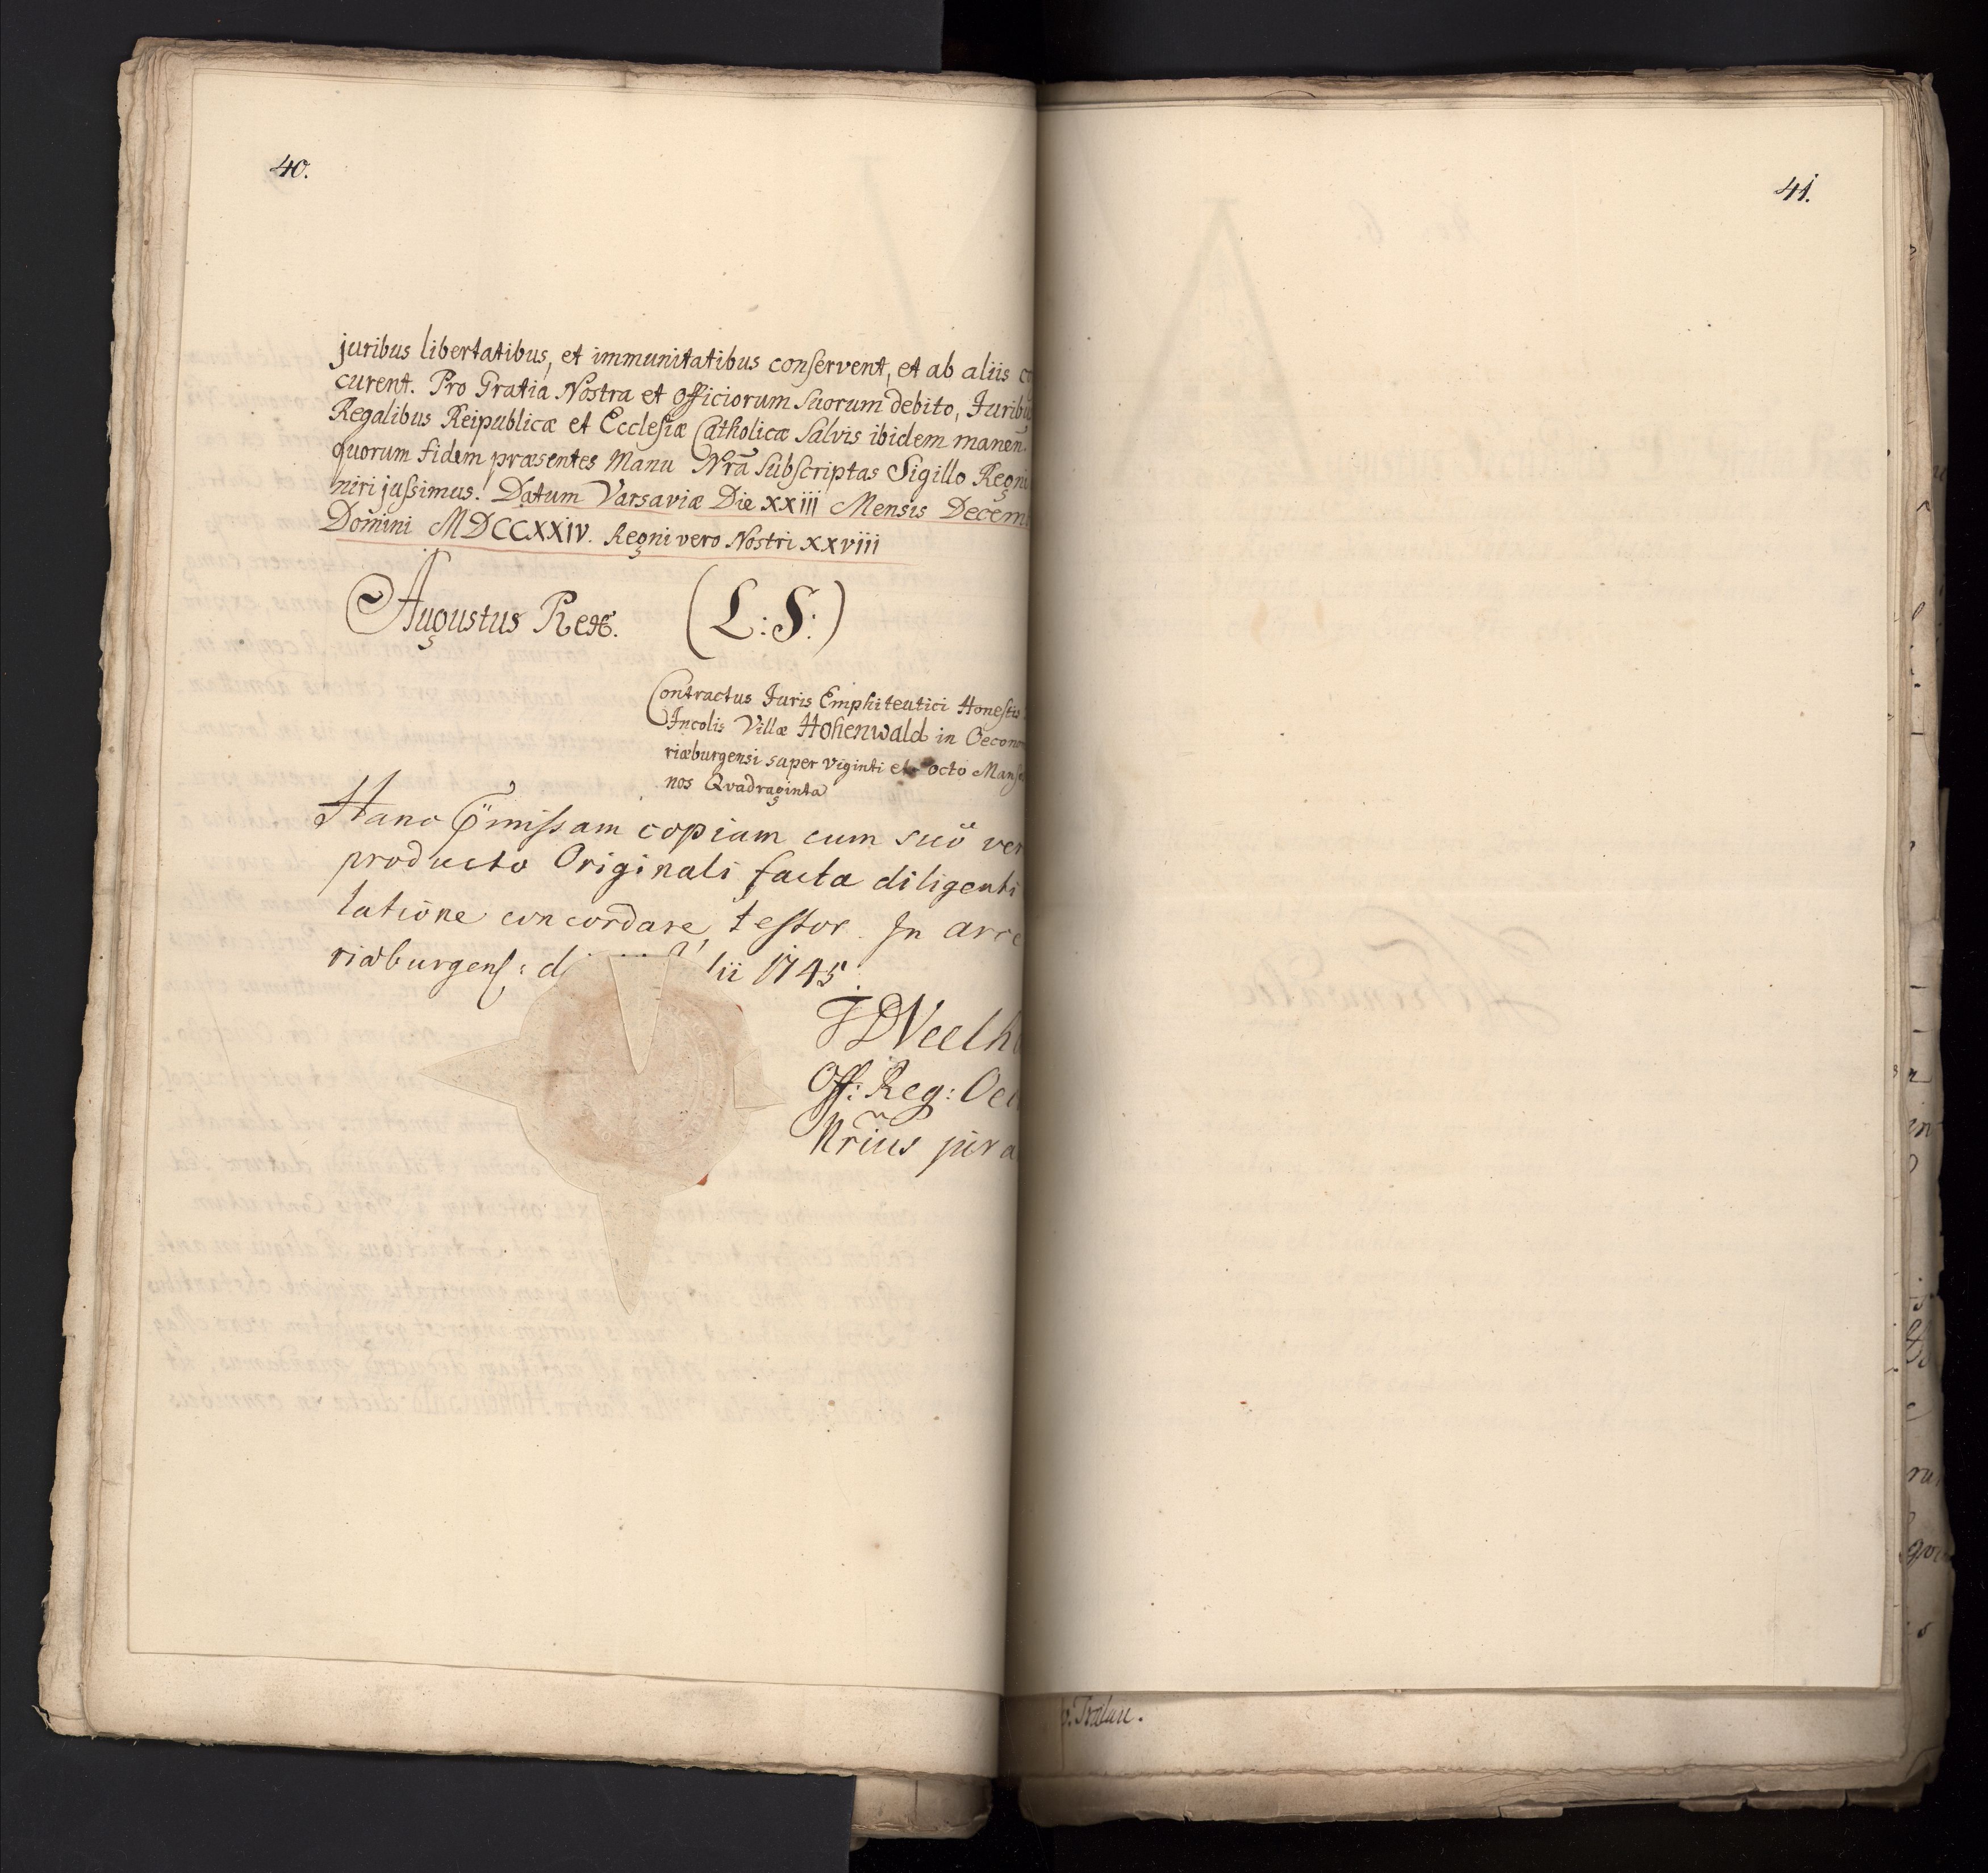 40.
juribus libertatibus, et immunitatibus conservent, et ab aliis
curent. Pro Gratia Nostra et Officiorum Suorum debito, Juribus
Regalibus Reipublicæ et Ecclesiæ Catholicæ Salvis ibidem manen.
quorum fidem præsentes Manu Nrã Subscriptas Sigillo Regni
niri jussimus. Datum Varsaviæ Die XXIII Mensis Decem
Domini MDCCXXIV. Regni vero Nostri XXVIII
Augustus Rex. (L:S:)
Contractus Juris Emphiteutici Honestis
Incolis Villæ Hohenwald in Oecono
riæburgensi super viginti et octo Manso
nos Qvadraginta
Hanc missam copiam cum suo ver
producto Originali facta diligenti
latione concordare testor. In arce
riæburgens: d lii 1745.
Off: Reg: Oec
Nrius jura
41.